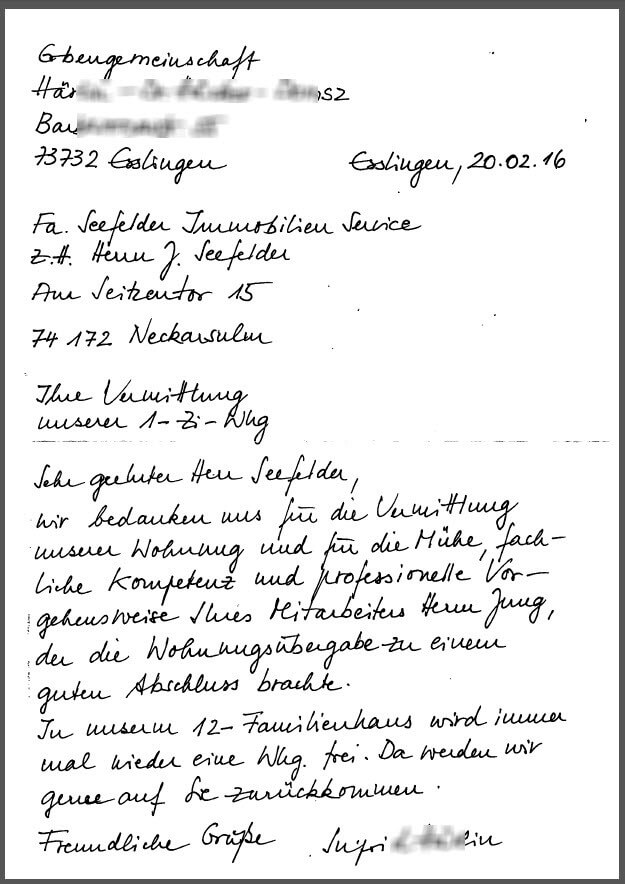 Erbengemeinschaft
73732 Esslingen
Esslingen, 20.02.16
Fa. Seefelder Immobilien Service
z.H. Herrn J. Seefelder
Am Seitzentor 15
74 172 Neckarsulm
Ihre Vermittlung
unserer 1-Zi-Whg
Sehr geehrter Herr Seefelder,
wir bedanken uns für die Vermittlung
unserer Wohnung und für die Mühe, fach-
liche Kompetenz und professionelle Vor-
gehensweise Ihres Mitarbeiters Herrn Jung,
der die Wohnungsübergabe zu einem
guten Abschluss brachte.
In unserm 12-Familienhaus wird immer
mal wieder eine Whg. frei. Da werden wir
gerne auf Sie zurückkommen.
Freundliche Grüße